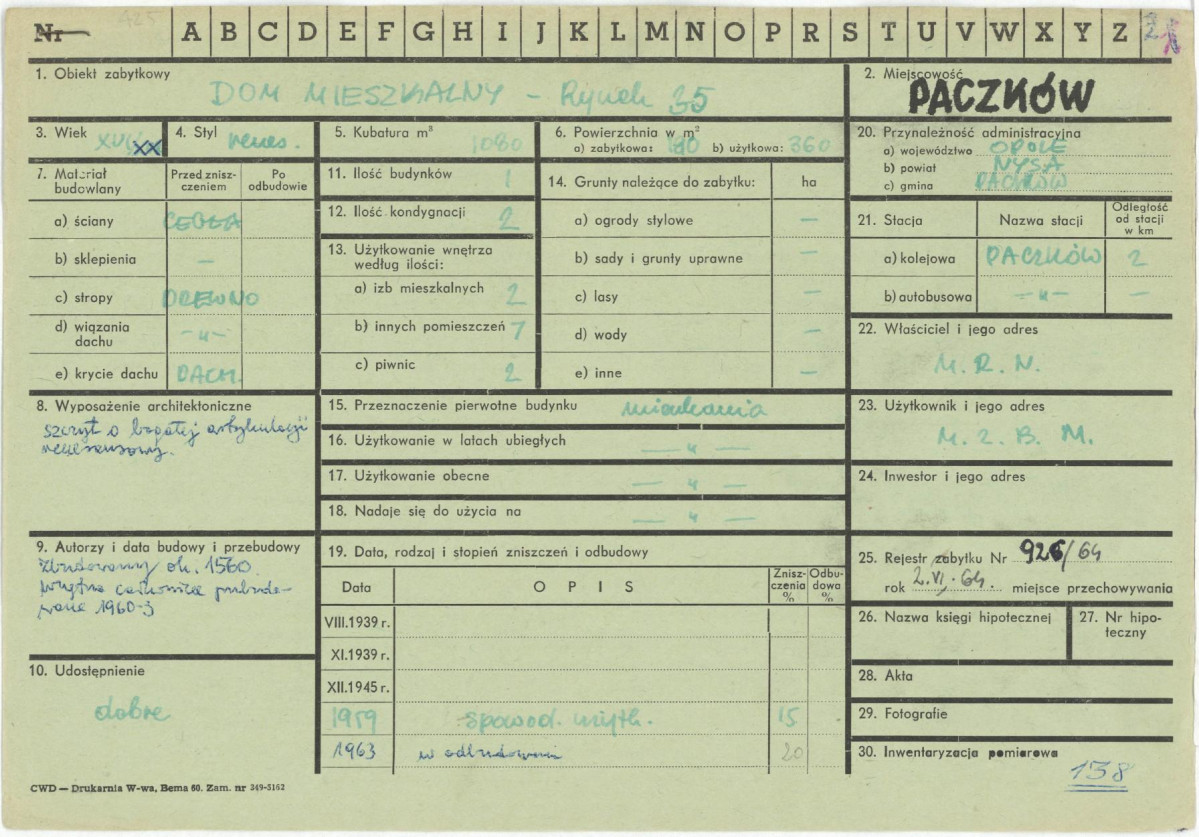 Nr 425 A B C D E F G H I J K L M N O P R S T U V W X Y Z
1. Obiekt zabytkowy
DOM MIESZKALNY – Rynek 35
2. Miejscowość
PACZKÓW
3. Wiek
XVI, XX
4. Styl
renes.
5. Kubatura m³
1080
6. Powierzchnia w m²
a) zabytkowa: 180 b) użytkowa: 360
20. Przynależność administracyjna
a) województwo OPOLE
b) powiat NYSA
c) gmina PACZKÓW
7. Materiał budowlany
Przed znisz-
czeniem
Po
odbudowie
a) ściany CEGŁA
b) sklepienia –
c) stropy DREWNO
d) wiązania
dachu –"–
e) krycie dachu DACH.
11. Ilość budynków 1
12. Ilość kondygnacji 2
13. Użytkowanie wnętrza
według ilości:
a) izb mieszkalnych 2
b) innych pomieszczeń 7
c) piwnic 2
14. Grunty należące do zabytku: ha
a) ogrody stylowe –
b) sady i grunty uprawne –
c) lasy –
d) wody –
e) inne –
21. Stacja Nazwa stacji
Odległość
od stacji
w km
a) kolejowa PACZKÓW 2
b) autobusowa –"– –
22. Właściciel i jego adres
M. R. N.
8. Wyposażenie architektoniczne
szczyt o bogatej artykulacji
renesansowy.
15. Przeznaczenie pierwotne budynku mieszkania
16. Użytkowanie w latach ubiegłych –"–
17. Użytkowanie obecne –"–
18. Nadaje się do użycia na –"–
23. Użytkownik i jego adres
M. Z. B. M.
24. Inwestor i jego adres
9. Autorzy i data budowy i przebudowy
Zbudowany ok. 1560.
wnętrze całkowicie przebudo-
wane 1960-3
10. Udostępnienie
dobre
19. Data, rodzaj i stopień zniszczeń i odbudowy
Data O P I S
Znisz-
czenia
%
Odbu-
dowa
%
VIII.1939 r.
XI.1939 r.
XII.1945 r.
1959 spowod. użytk. 15
1963 w odbudowie 20
25. Rejestr zabytku Nr 926/64
rok 2.VI.64. miejsce przechowywania
26. Nazwa księgi hipotecznej
27. Nr hipo-
teczny
28. Akta
29. Fotografie
30. Inwentaryzacja pomiarowa
138
CWD — Drukarnia W-wa, Bema 60. Zam. nr 349-5162